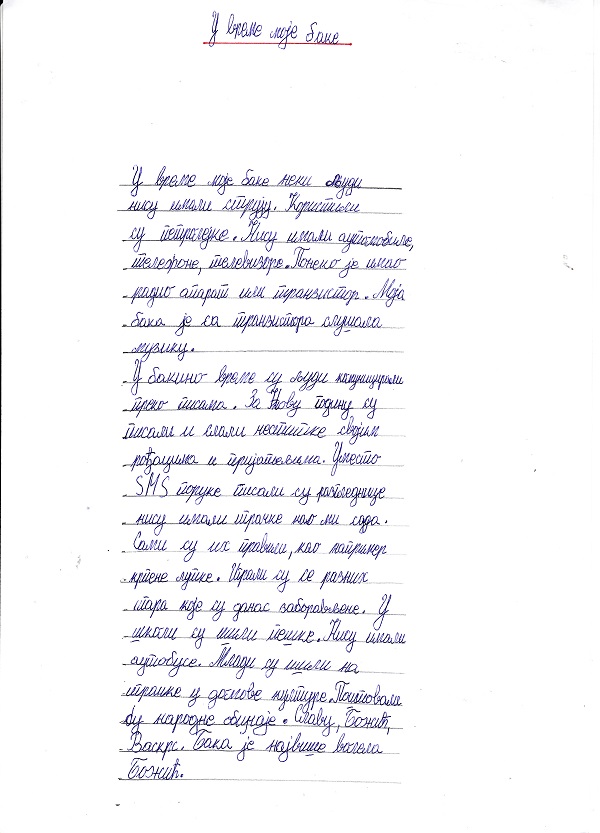 У време моје баке
У време моје баке неки људи
нису имали струју. Користили
су петролејке. Нису имали аутомобиле,
телефоне, телевизоре. Понеко је имао
радио апарат или транзистор. Моја
бака је са транзистора слушала
музику.
У бакино време су људи комуницирали
преко писама. За Нову годину су
писали и слали честитке својим
рођацима и пријатељима. Уместо
SMS поруке писали су разгледнице
нису имали играчке као ми сада.
Сами су их правили, као например
крпене лутке. Играли су се разних
игара које су данас заборављене. У
школи су ишли пешке. Нису имали
аутобусе. Млади су ишли на
игранке у домове културе. Поштовали
су народне обичаје. Славу, Божић,
Васкрс. Бака је највише волела
Божић.